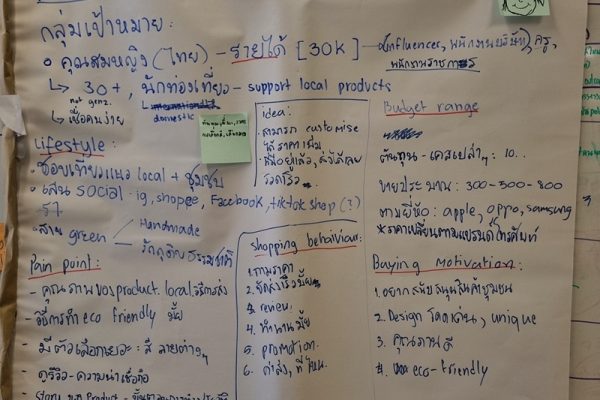 กลุ่มเป้าหมาย :
คุณสมหญิง (ไทย) - รายได้ [30K] — influencer, พนักงานบริษัท, ครู,
พนักงานราชการ
↳ 30+, นักท่องเที่ยว - support local products
not genz.
domestic
↳ เบื่อคนง่าย
Lifestyle :
ชอบเที่ยวแนว local + ชุมชน
เล่น social - ig, shopee, Facebook, tiktok shop (?)
สาย green
Handmade
วัตถุดิบธรรมชาติ
Pain point :
- คุณภาพของ product local
- วิธีการทำ eco friendly มั้ย
- มีตัวเลือกเยอะ : สี ลายต่างๆ
- ดูรีวิว - ความน่าเชื่อถือ
idea :
สามารถ customise
ได้ ราคาเพิ่ม
Shopping behaviour :
1. ถามราคา
2. จัดส่งเร็วมั้ย
3. review.
4. ทำนานมั้ย
5. promotion.
6. ค่าส่ง, ที่ไหน
Budget range
ต้นทุน - เคสเปล่าๆ : 10..
ขายประมาณ : 300-500-800
ตามยี่ห้อ : apple, oppo, samsung
*ราคาเปลี่ยนตามแบรนด์โทรศัพท์
Buying Motivation :
1. อยากสนับสนุนสินค้าชุมชน
2. Design โดดเด่น, unique
3. คุณภาพดี
4. eco-friendly